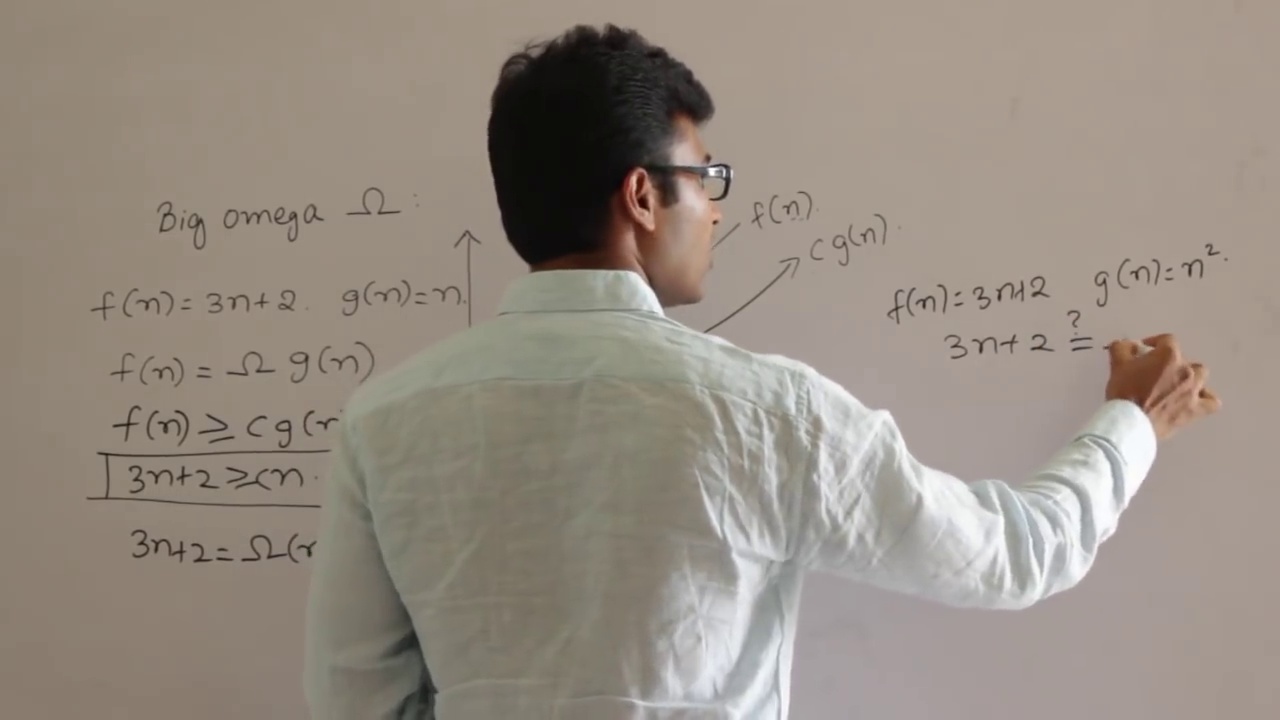 Big omega Ω :
f(n) = 3n+2. g(n) = n.
f(n) = Ω g(n)
f(n) ≥ c g(n
3n+2 ≥ cn.
3n+2 = Ω(n
f(n).
c g(n).
f(n) = 3n+2 g(n) = n².
?
3n+2 =